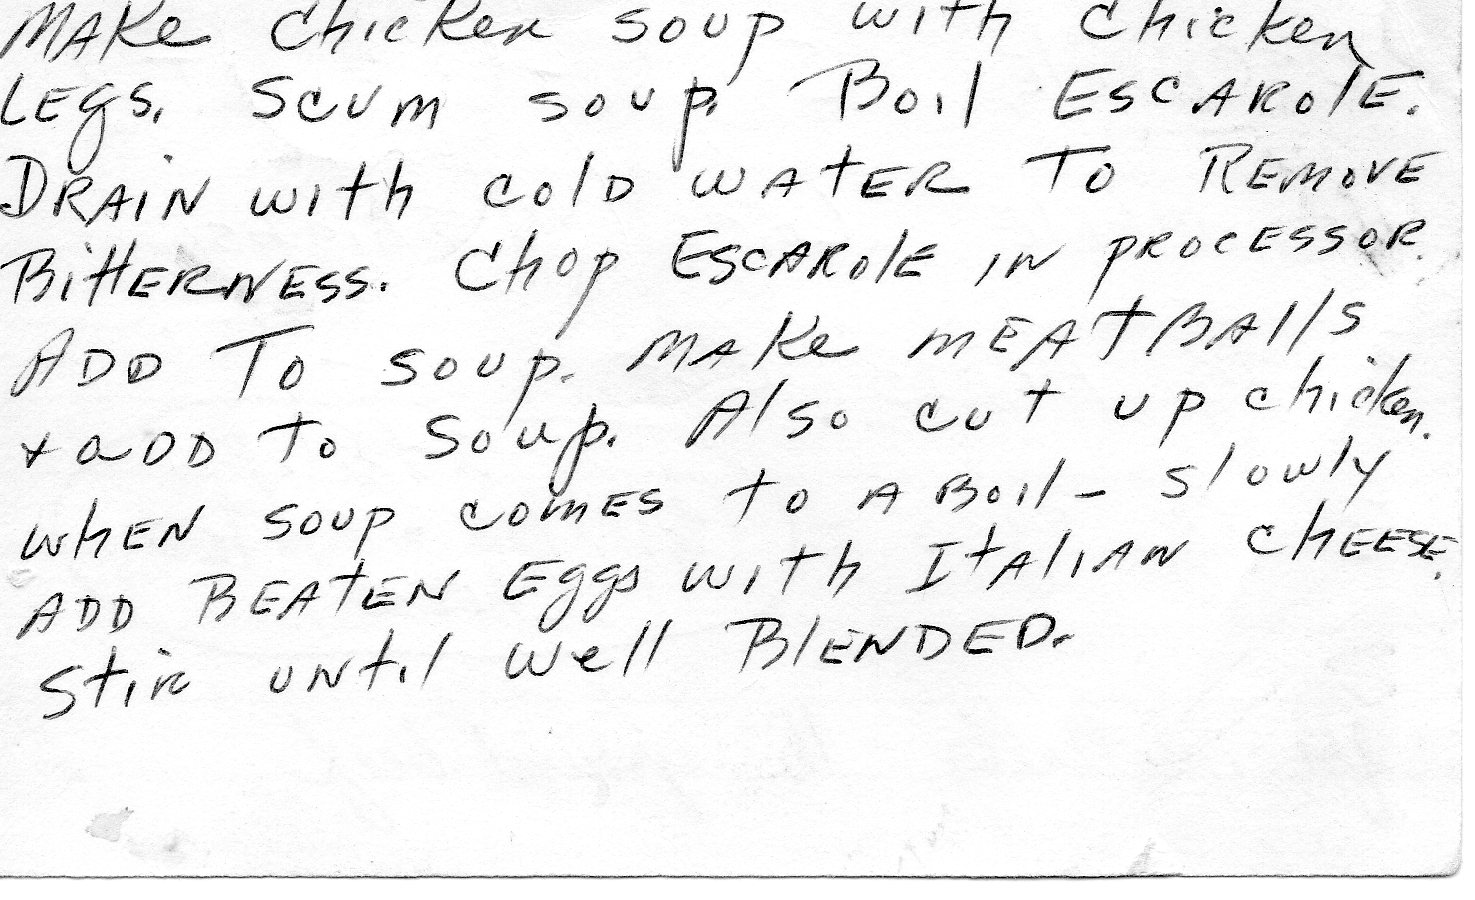 MAKe chicken soup with chicken
LEgs. Scum soup. Boil ESCARolE.
DRAiN with cold WAtER To REMOVE
BittERNESS. Chop ESCARolE iN pROCESSOR.
ADD To soup. MAKe MEAtBAllS
+ aDD To Soup. Also cut up chicken.
WhEN soup comES to A Boil - slowly
ADD BEAtEN Eggs with ItAliAN chEESE.
Stir uNtil well BlENDED.